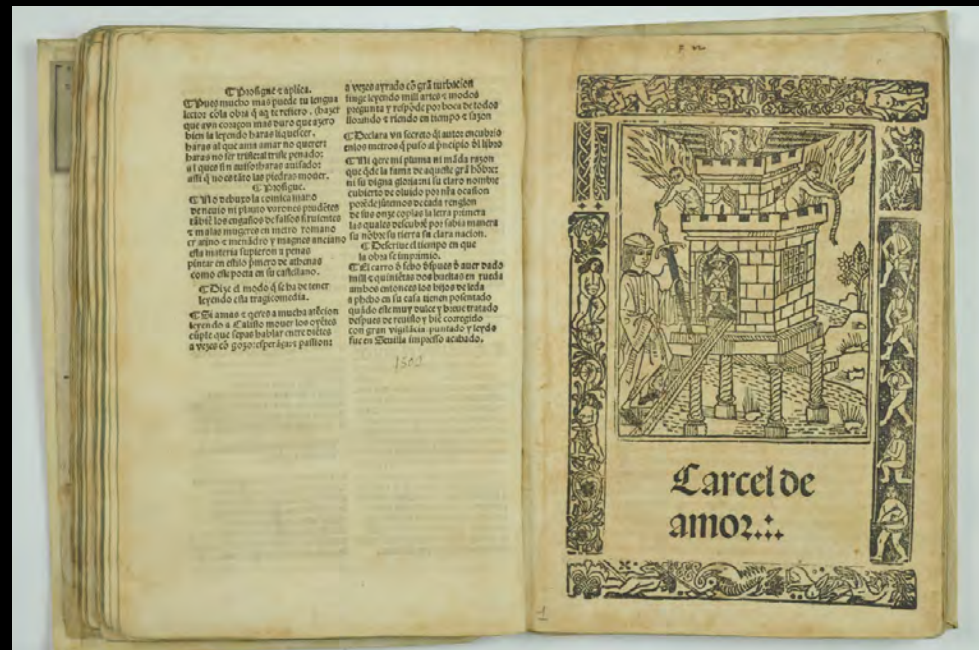 ¶ Prosigue ⁊ aplica.
¶ Pues mucho mas puede tu lengua
lector cõla obra q̃ aq̃ te refiero. (hazer
que avn coraçon mas duro que azero
bien la leyendo haras liquescer.
haras al que ama amar no querer:
haras no ser triste al triste penado:
al ques sin auiso: haras auisado:
assi q̃ no es tãto las piedras mouer.
¶ Prosigue.
¶ No debuxo la comica mano
de neuio ni plauto varones prudẽtes
tãbiẽ los engaños de falsos siruientes
⁊ malas mugeres en metro romano
cratino ⁊ menãdro y magnes anciano
esta materia supieron a penas
pintar en estilo p̃mero de athenas
como este poeta en su castellano.
¶ Dize el modo q̃ se ha de tener
leyendo esta tragicomedia.
¶ Si amas ⁊ q̃eres a mucha atẽcion
leyendo a Calisto mouer los oyẽtes
cũple que sepas hablar entre diẽtes
a vezes cõ gozo: esperãça: ⁊ passion:
a vezes ayrado cõ grã turbacion
finge leyendo mill artes ⁊ modos
pregunta y respõde por boca de todos
llorando ⁊ riendo en tiempo ⁊ sazon
¶ Declara vn secreto q̃l autor encubrio
enlos metros q̃ puso al p̃ncipio ðl libro
¶ Ni q̃ere mi pluma ni mãda razon
que q̃de la fama de aqueste grã hõbre:
ni su digna gloria: ni su claro nombre
cubierto de oluido por nr̃a ocasion
porẽde jũtemos de cada renglon
de sus onze coplas la letra primera
las quales descubrẽ por sabia manera
su nõbre su tierra su clara nacion.
¶ Descriue el tiempo en que
la obra se imprimio.
¶ El carro ð febo ðspues ð auer dado
mill ⁊ quiniẽtas dos bueltas en rueda
ambos entonces los hijos de leda
a phebo en su casa tienen posentado
quãdo este muy dulce y breue tratado
despues de reuisto y biẽ corregido
con gran vigilãcia puntado y leydo
fue en Seuilla impresso acabado.
Carcel de
amor
1